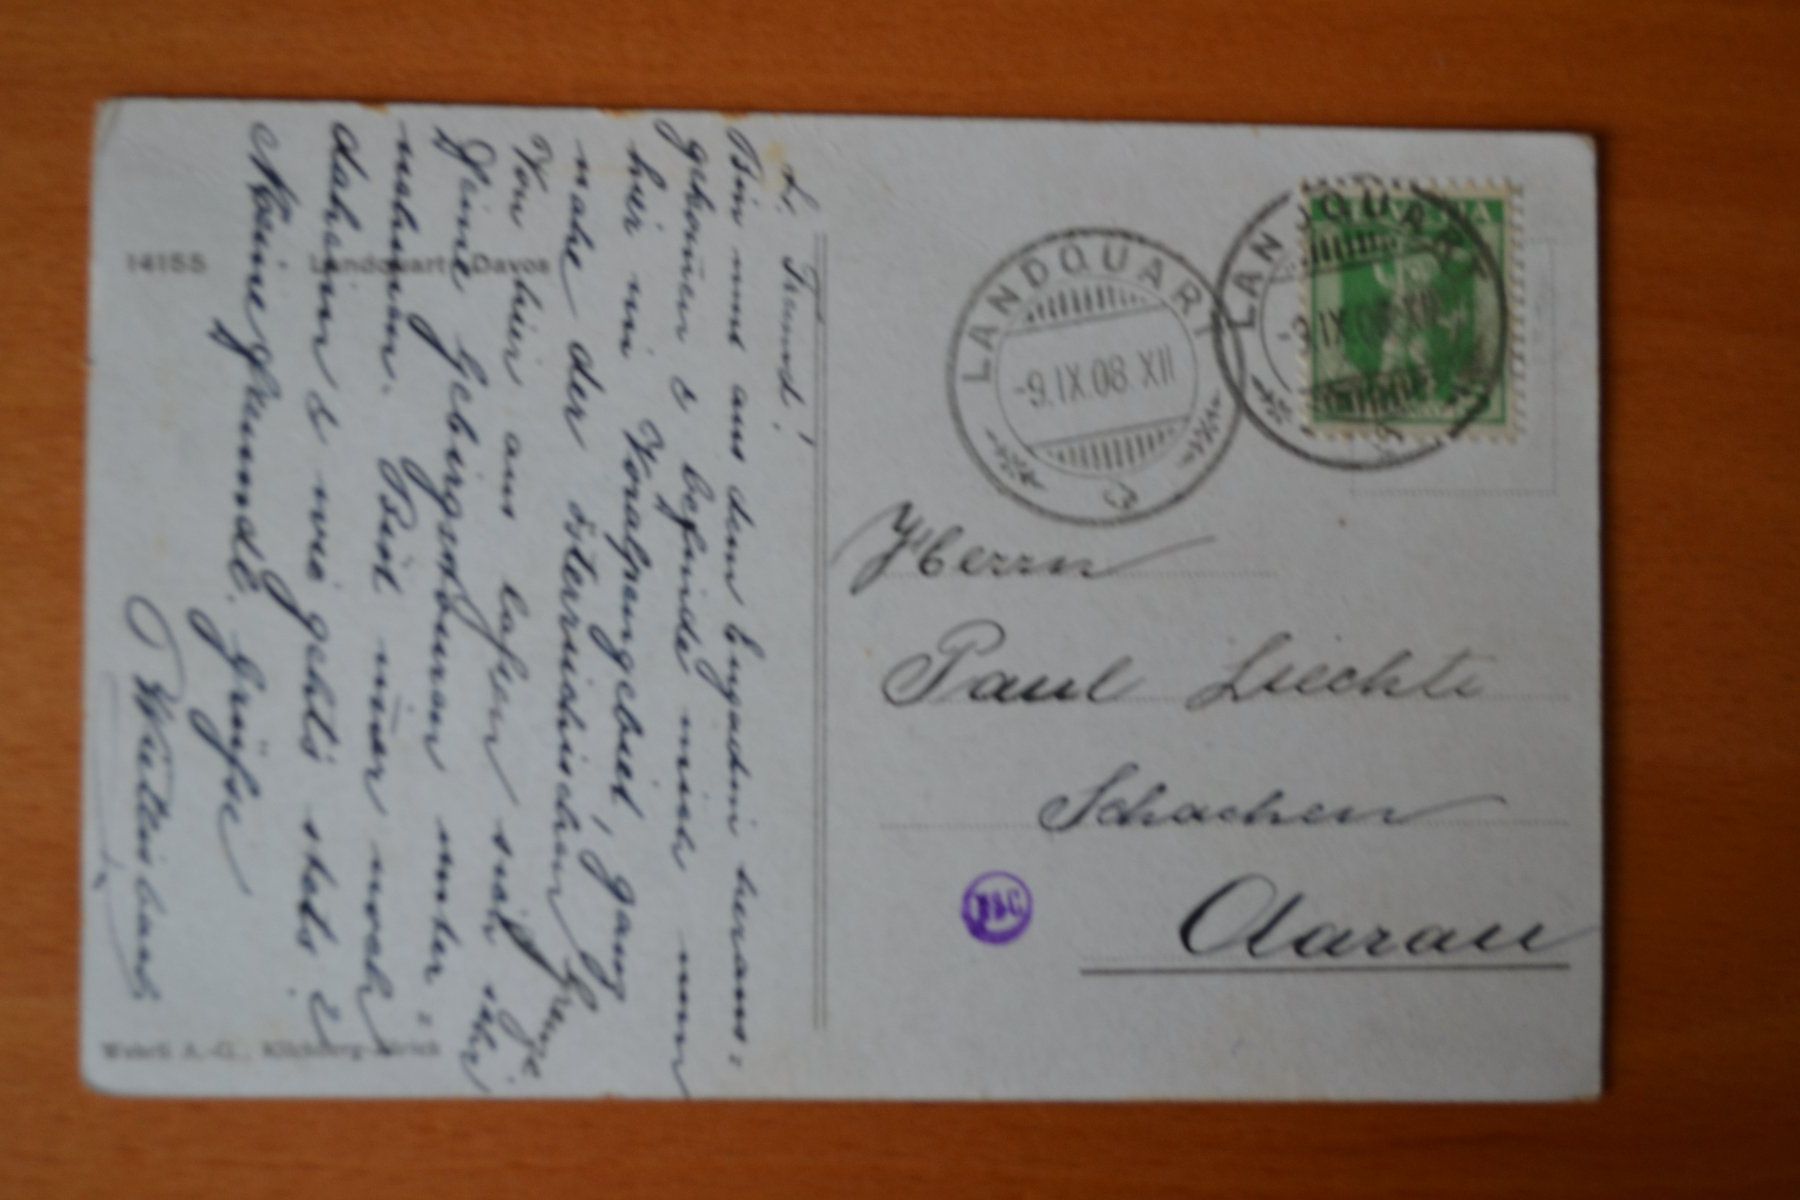 L. Freund!
Bin nun aus dem Engadin heraus=
gekom̄en & befinde mich nun
hier im Voralpengebiet, ganz
nahe der österreichischen Grenze
Von hier aus lassen sich sehr
feine Gebirgstouren unter=
nehmen. Bist im̄er noch
daheim & wie gehts stets?
Meine Freunde. Grüsse
14155 Landquart-Davos
Wehrli A.-G., Kilchberg-Zürich
LANDQUART
-9.IX.08.XII
LANDQUART
-9.IX.08.XII
HELVETIA
Herrn
Paul Liechti
Schachen
Aarau